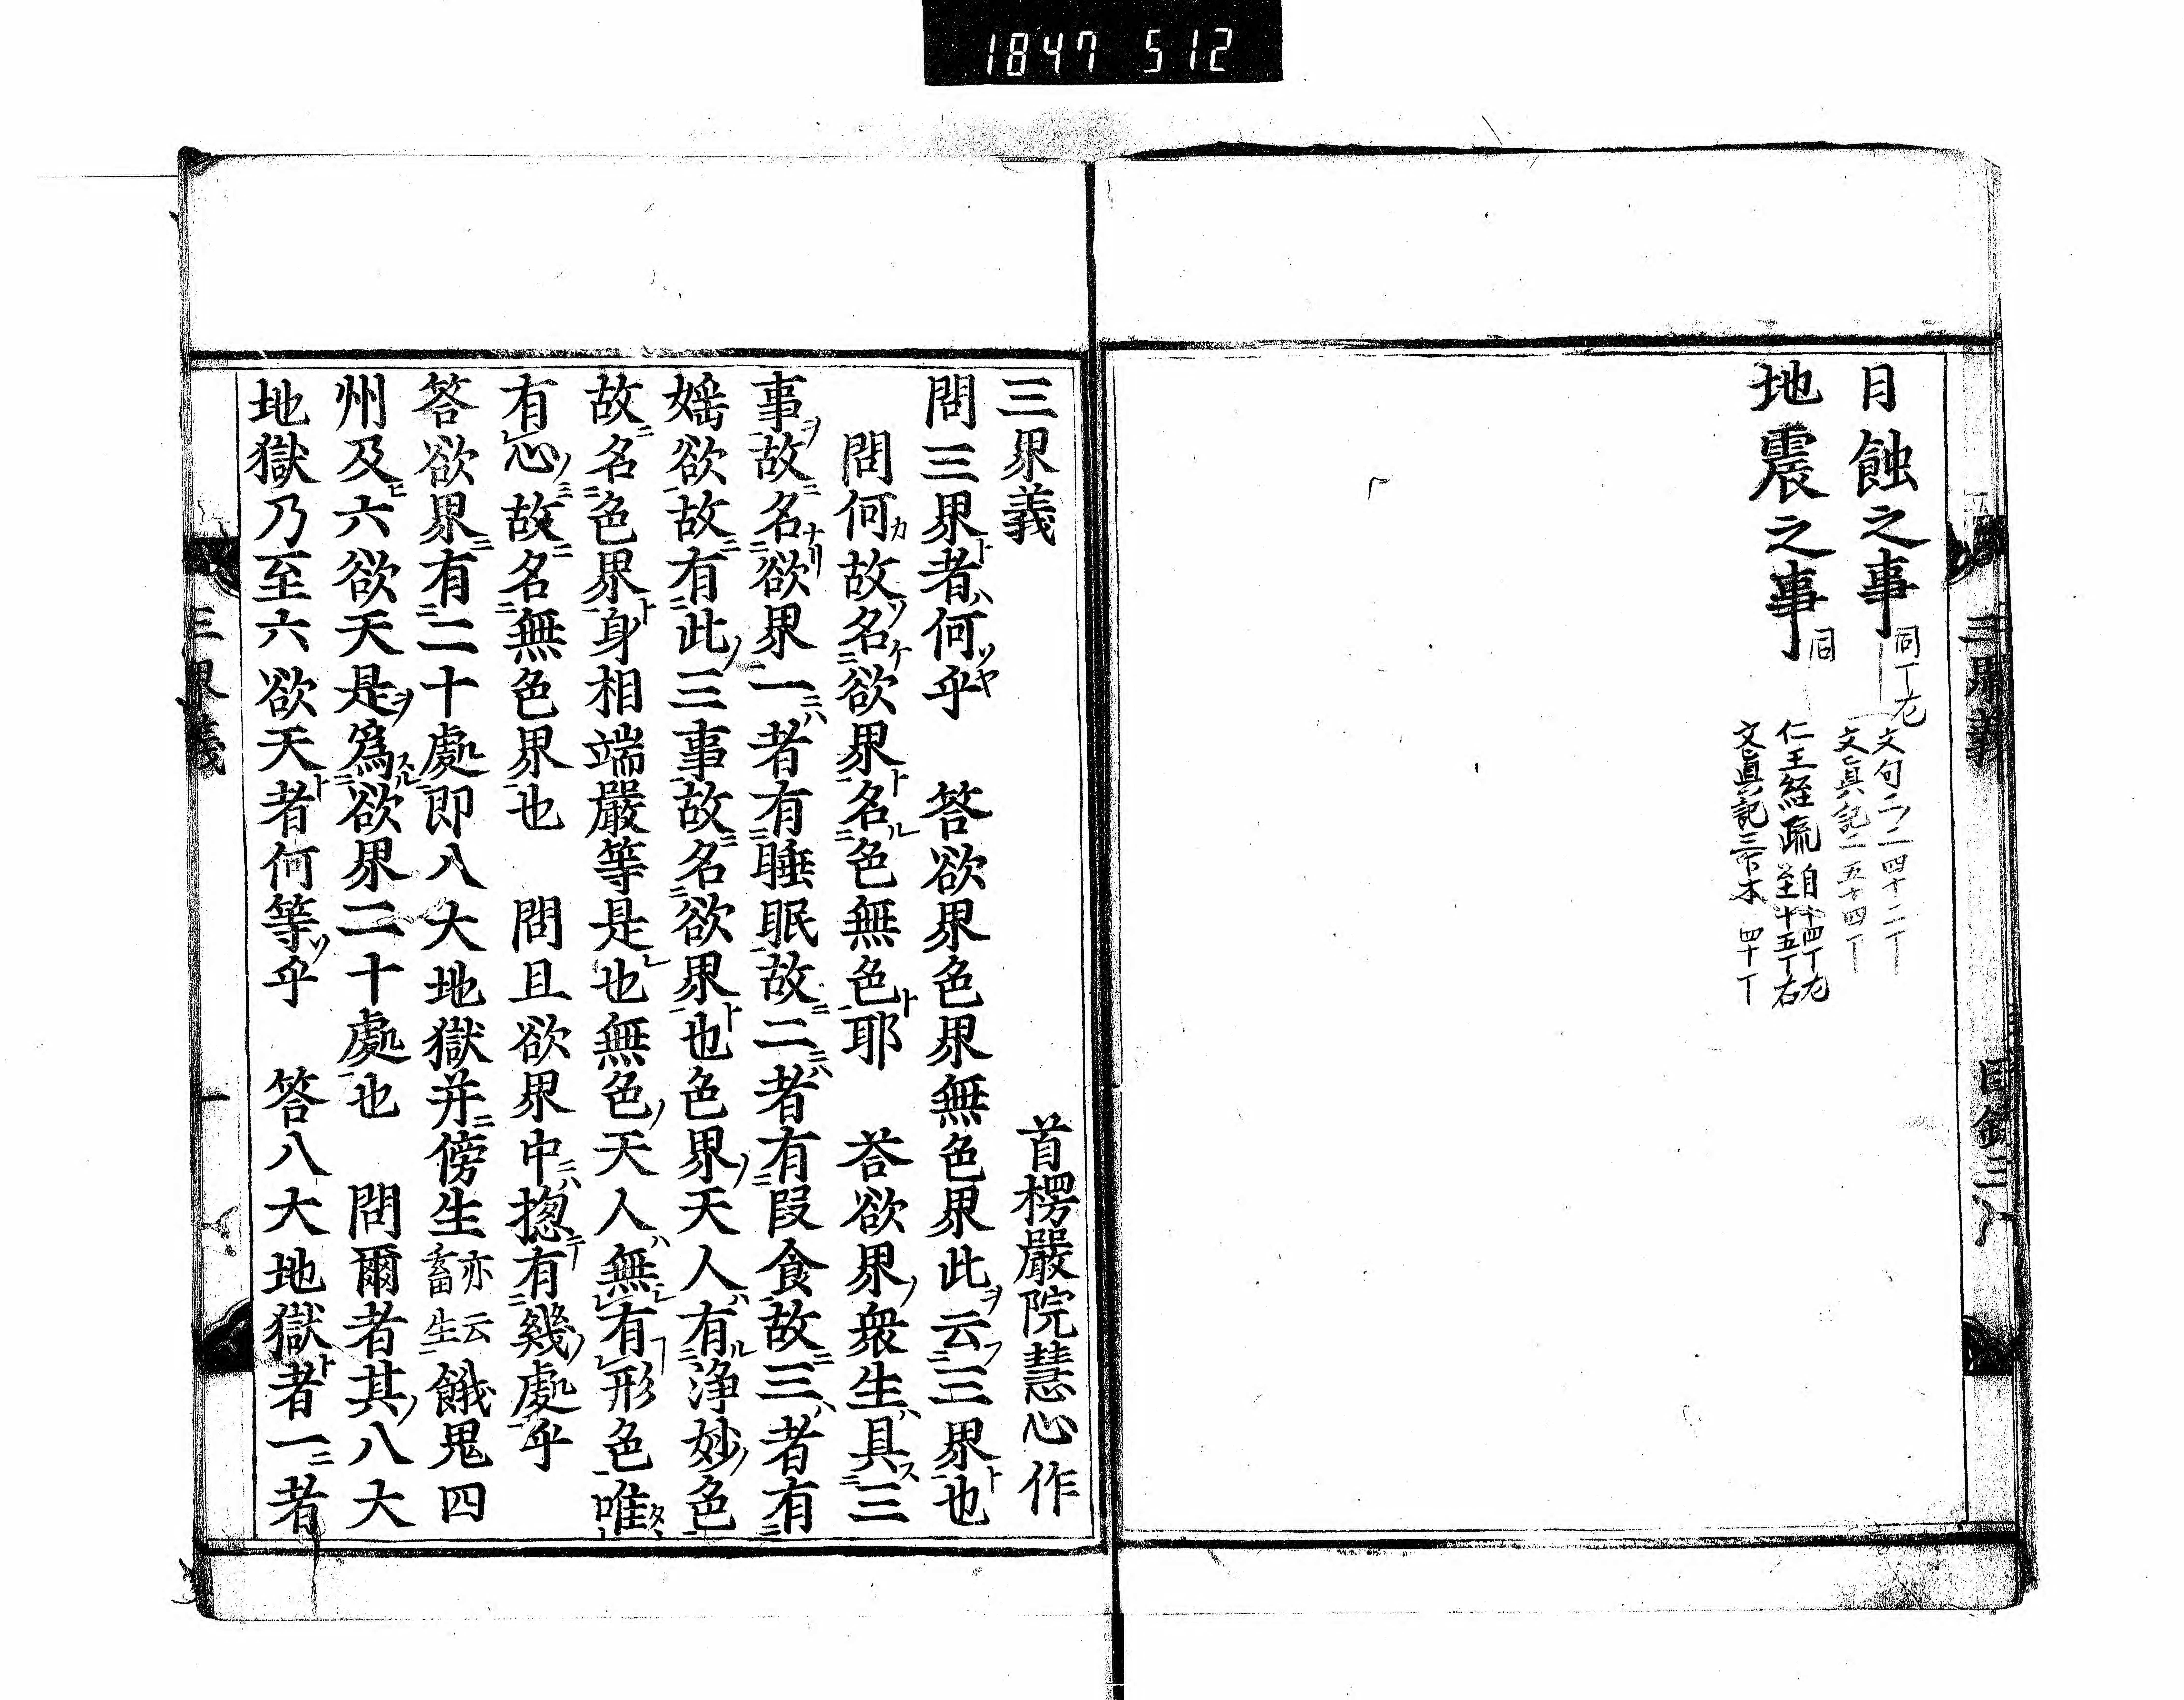 1847 512
月蝕之事 同丁左
文句二ノ二 四十二丁
文眞記二 五十四丁
地震之事 同
仁王經疏 自十四丁左
至十五丁右
文眞記三下本 四十丁
三界義 目錄三
三界義 首楞嚴院慧心作
問三界者何乎 答欲界色界無色界此云三界也
問何故名欲界名色無色耶 荅欲界衆生具三
事故名欲界一者有睡眠故二者有段食故三者有
婬欲故有此三事故名欲界也色界天人有淨妙色
故名色界身相端嚴等是也無色天人無有形色唯
有心故名無色界也 問且欲界中揔有幾處乎
答欲界有二十處即八大地獄并傍生亦云畜生餓鬼四
州及六欲天是爲欲界二十處也 問爾者其八大
地獄乃至六欲天者何等乎 答八大地獄者一者
三界義 一